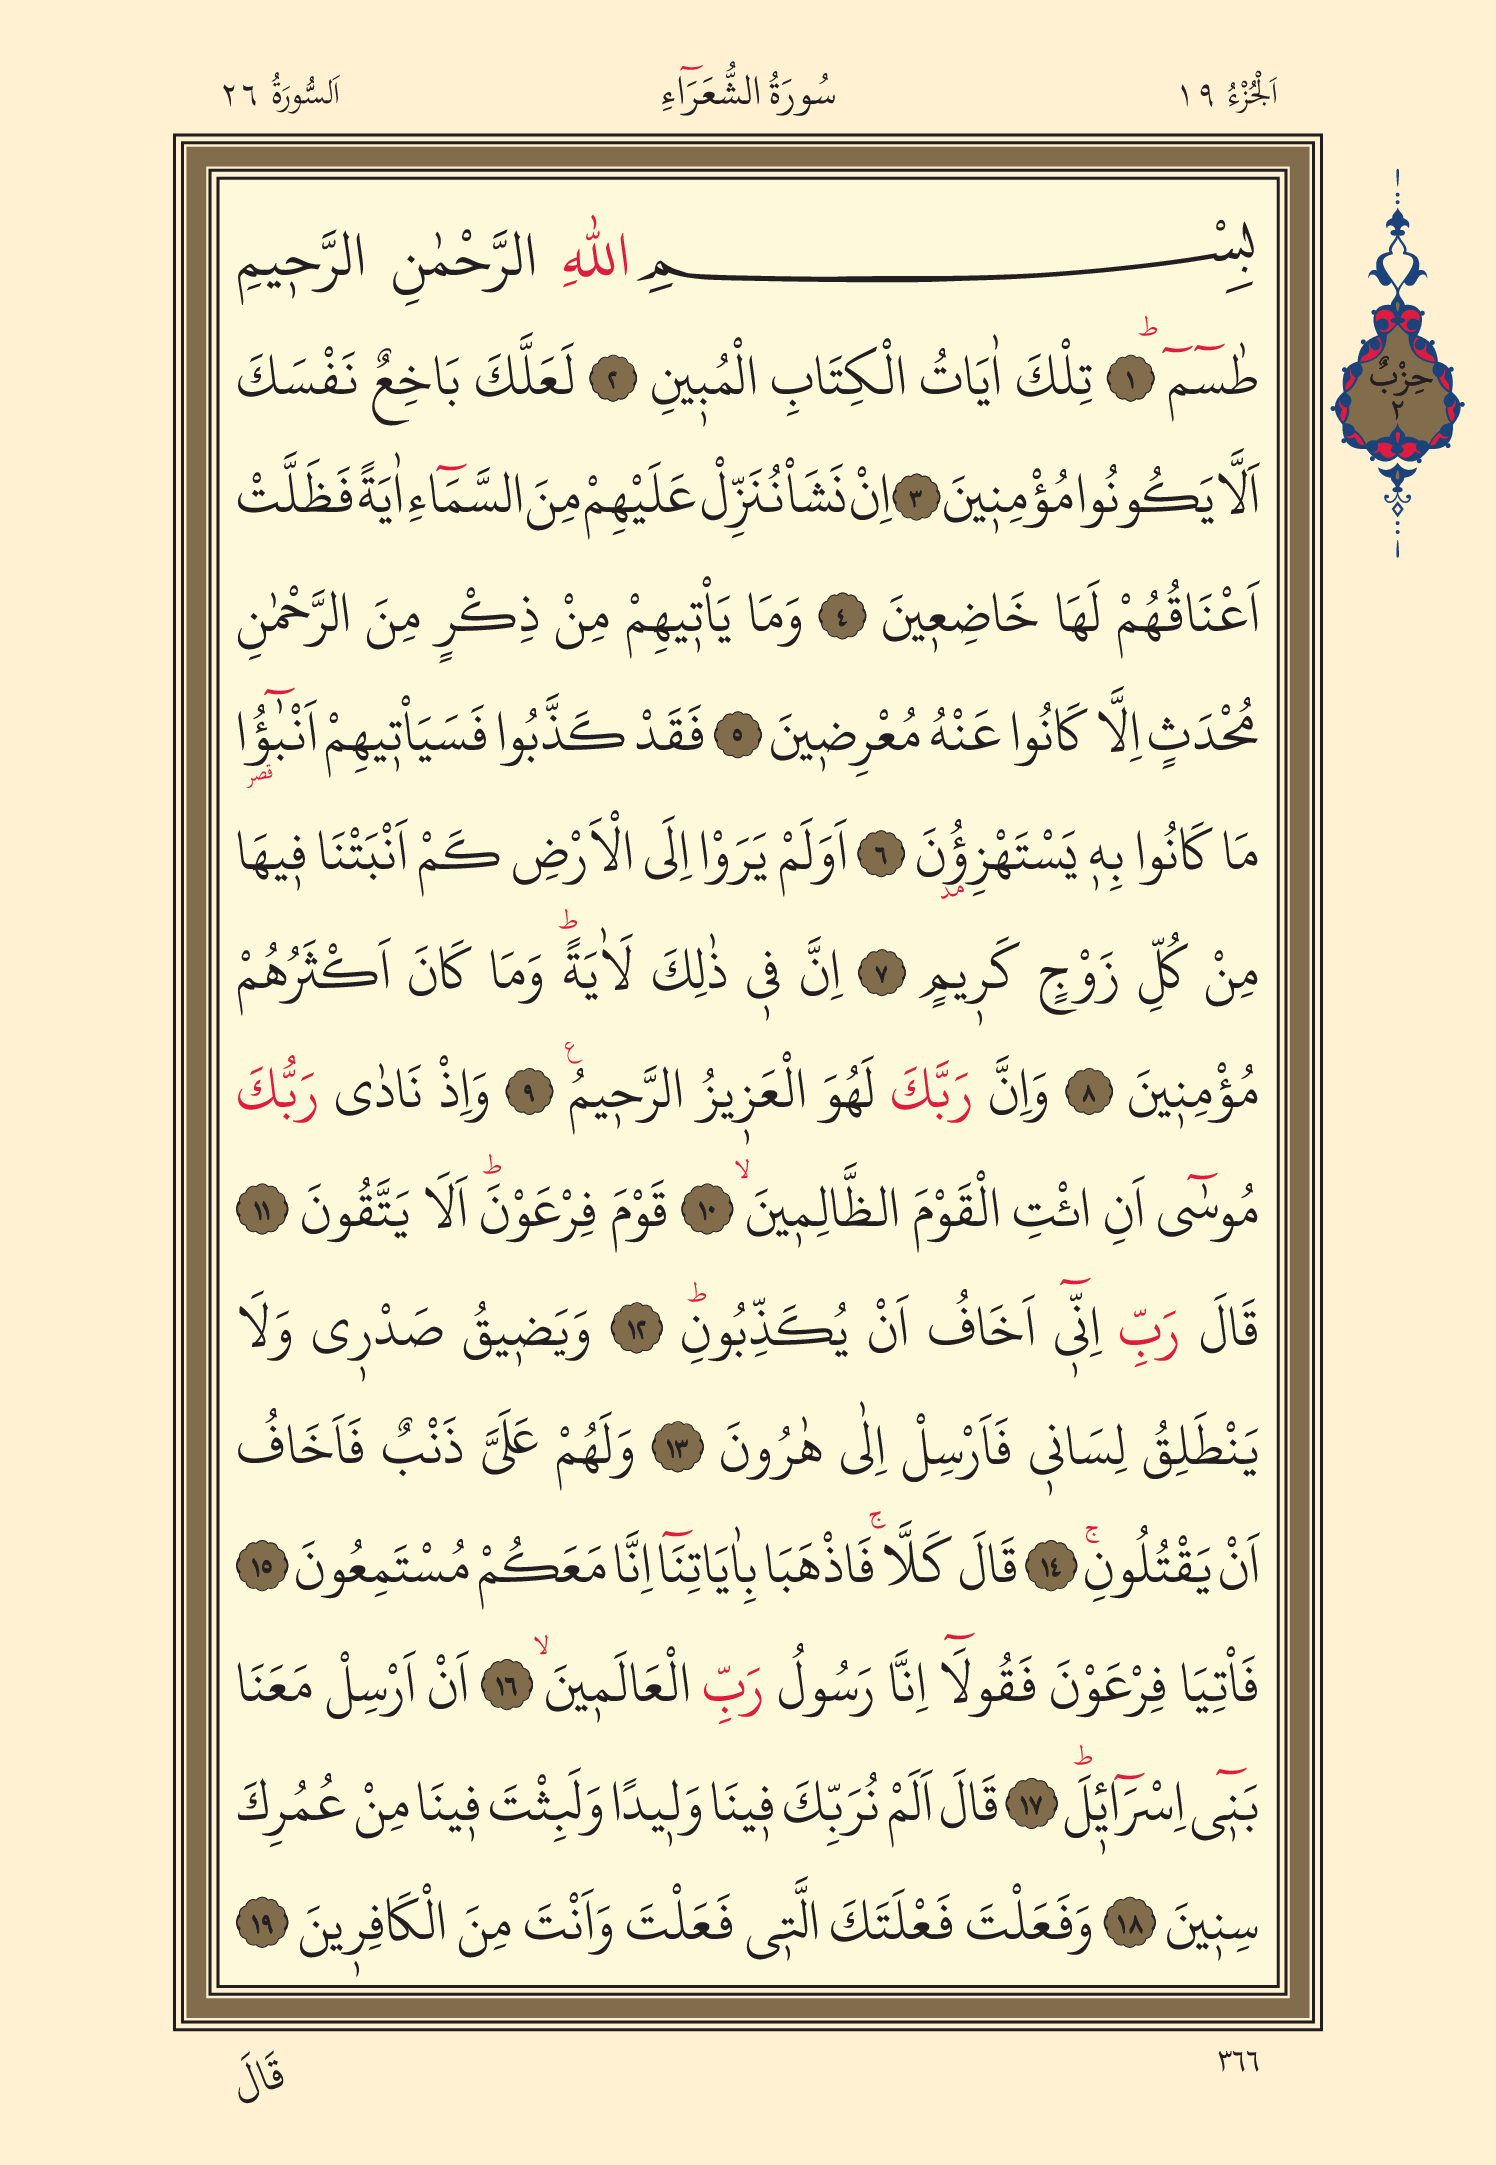 اَلْجُزْءُ ١٩
سُورَةُ الشُّعَرَٓاءِ
اَلسُّورَةُ ٢٦
حِزْبٌ
٢
بِسْمِ اللّٰهِ الرَّحْمٰنِ الرَّحٖيمِ
طٰسٓمٓ ؕ ١ تِلْكَ اٰيَاتُ الْكِتَابِ الْمُبٖينِ ٢ لَعَلَّكَ بَاخِعٌ نَفْسَكَ
اَلَّا يَكُونُوا مُؤْمِنٖينَ ٣ اِنْ نَشَاْ نُنَزِّلْ عَلَيْهِمْ مِنَ السَّمَٓاءِ اٰيَةً فَظَلَّتْ
اَعْنَاقُهُمْ لَهَا خَاضِعٖينَ ٤ وَمَا يَاْتٖيهِمْ مِنْ ذِكْرٍ مِنَ الرَّحْمٰنِ
مُحْدَثٍ اِلَّا كَانُوا عَنْهُ مُعْرِضٖينَ ٥ فَقَدْ كَذَّبُوا فَسَيَاْتٖيهِمْ اَنْبٰٓؤُا قصر
مَا كَانُوا بِهٖ يَسْتَهْزِؤُنَ مد ٦ اَوَلَمْ يَرَوْا اِلَى الْاَرْضِ كَمْ اَنْبَتْنَا فٖيهَا
مِنْ كُلِّ زَوْجٍ كَرٖيمٍ ٧ اِنَّ فٖى ذٰلِكَ لَاٰيَةً ؕ وَمَا كَانَ اَكْثَرُهُمْ
مُؤْمِنٖينَ ٨ وَاِنَّ رَبَّكَ لَهُوَ الْعَزٖيزُ الرَّحٖيمُ ع ٩ وَاِذْ نَادٰى رَبُّكَ
مُوسٰٓى اَنِ ائْتِ الْقَوْمَ الظَّالِمٖينَ ۙ ١٠ قَوْمَ فِرْعَوْنَ ؕ اَلَا يَتَّقُونَ ١١
قَالَ رَبِّ اِنّٖٓى اَخَافُ اَنْ يُكَذِّبُونِ ؕ ١٢ وَيَضٖيقُ صَدْرٖى وَلَا
يَنْطَلِقُ لِسَانٖى فَاَرْسِلْ اِلٰى هٰرُونَ ١٣ وَلَهُمْ عَلَىَّ ذَنْبٌ فَاَخَافُ
اَنْ يَقْتُلُونِ ۚ ١٤ قَالَ كَلَّا ۚ فَاذْهَبَا بِاٰيَاتِنَٓا اِنَّا مَعَكُمْ مُسْتَمِعُونَ ١٥
فَاْتِيَا فِرْعَوْنَ فَقُولَٓا اِنَّا رَسُولُ رَبِّ الْعَالَمٖينَ ۙ ١٦ اَنْ اَرْسِلْ مَعَنَا
بَنٖٓى اِسْرَٓائٖلَ ؕ ١٧ قَالَ اَلَمْ نُرَبِّكَ فٖينَا وَلٖيدًا وَلَبِثْتَ فٖينَا مِنْ عُمُرِكَ
سِنٖينَ ١٨ وَفَعَلْتَ فَعْلَتَكَ الَّتٖى فَعَلْتَ وَاَنْتَ مِنَ الْكَافِرٖينَ ١٩
٣٦٦
قَالَ